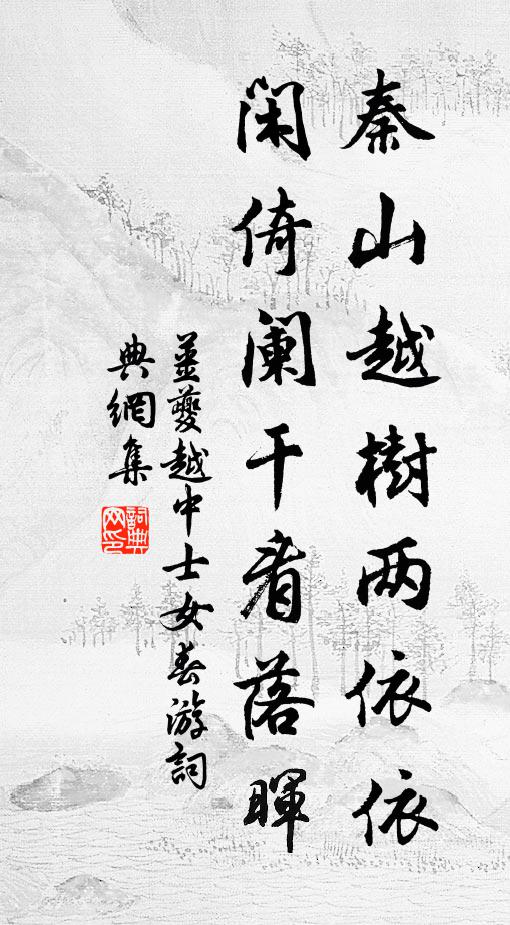 秦山越樹两依依
闲倚阑干看落暉
姜夔越中士女春游詞
典網集
詞典网印